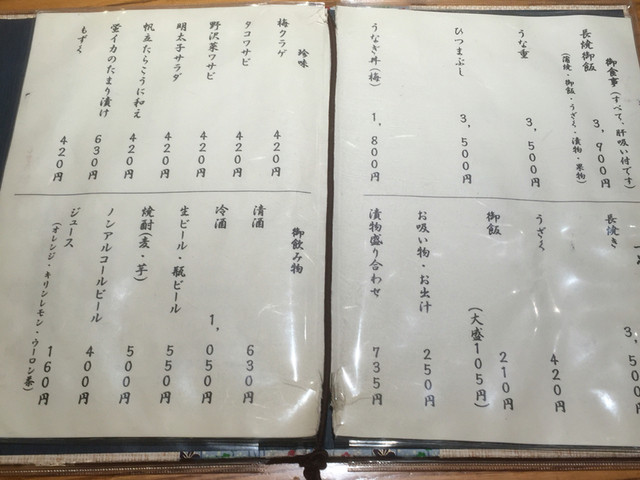 御食事(すべて、肝吸い付です)
長焼御飯 3,900円
(蒲焼・御飯・うざく・漬物・果物)
うな重 3,500円
ひつまぶし 3,500円
うなぎ丼(梅) 1,800円
長焼き 3,500円
うざく 420円
御飯 210円
(大盛105円)
お吸い物・お出汁 250円
漬物盛り合わせ 735円
珍味
梅クラゲ 420円
タコワサビ 420円
野沢菜ワサビ 420円
明太子サラダ 420円
帆立たらこうに和え 420円
蛍イカのたまり漬け 630円
もずく 420円
御飲み物
清酒 630円
冷酒 1,050円
生ビール・瓶ビール 550円
焼酎(麦・芋) 500円
ノンアルコールビール 400円
ジュース 160円
(オレンジ・キリンレモン・ウーロン茶)